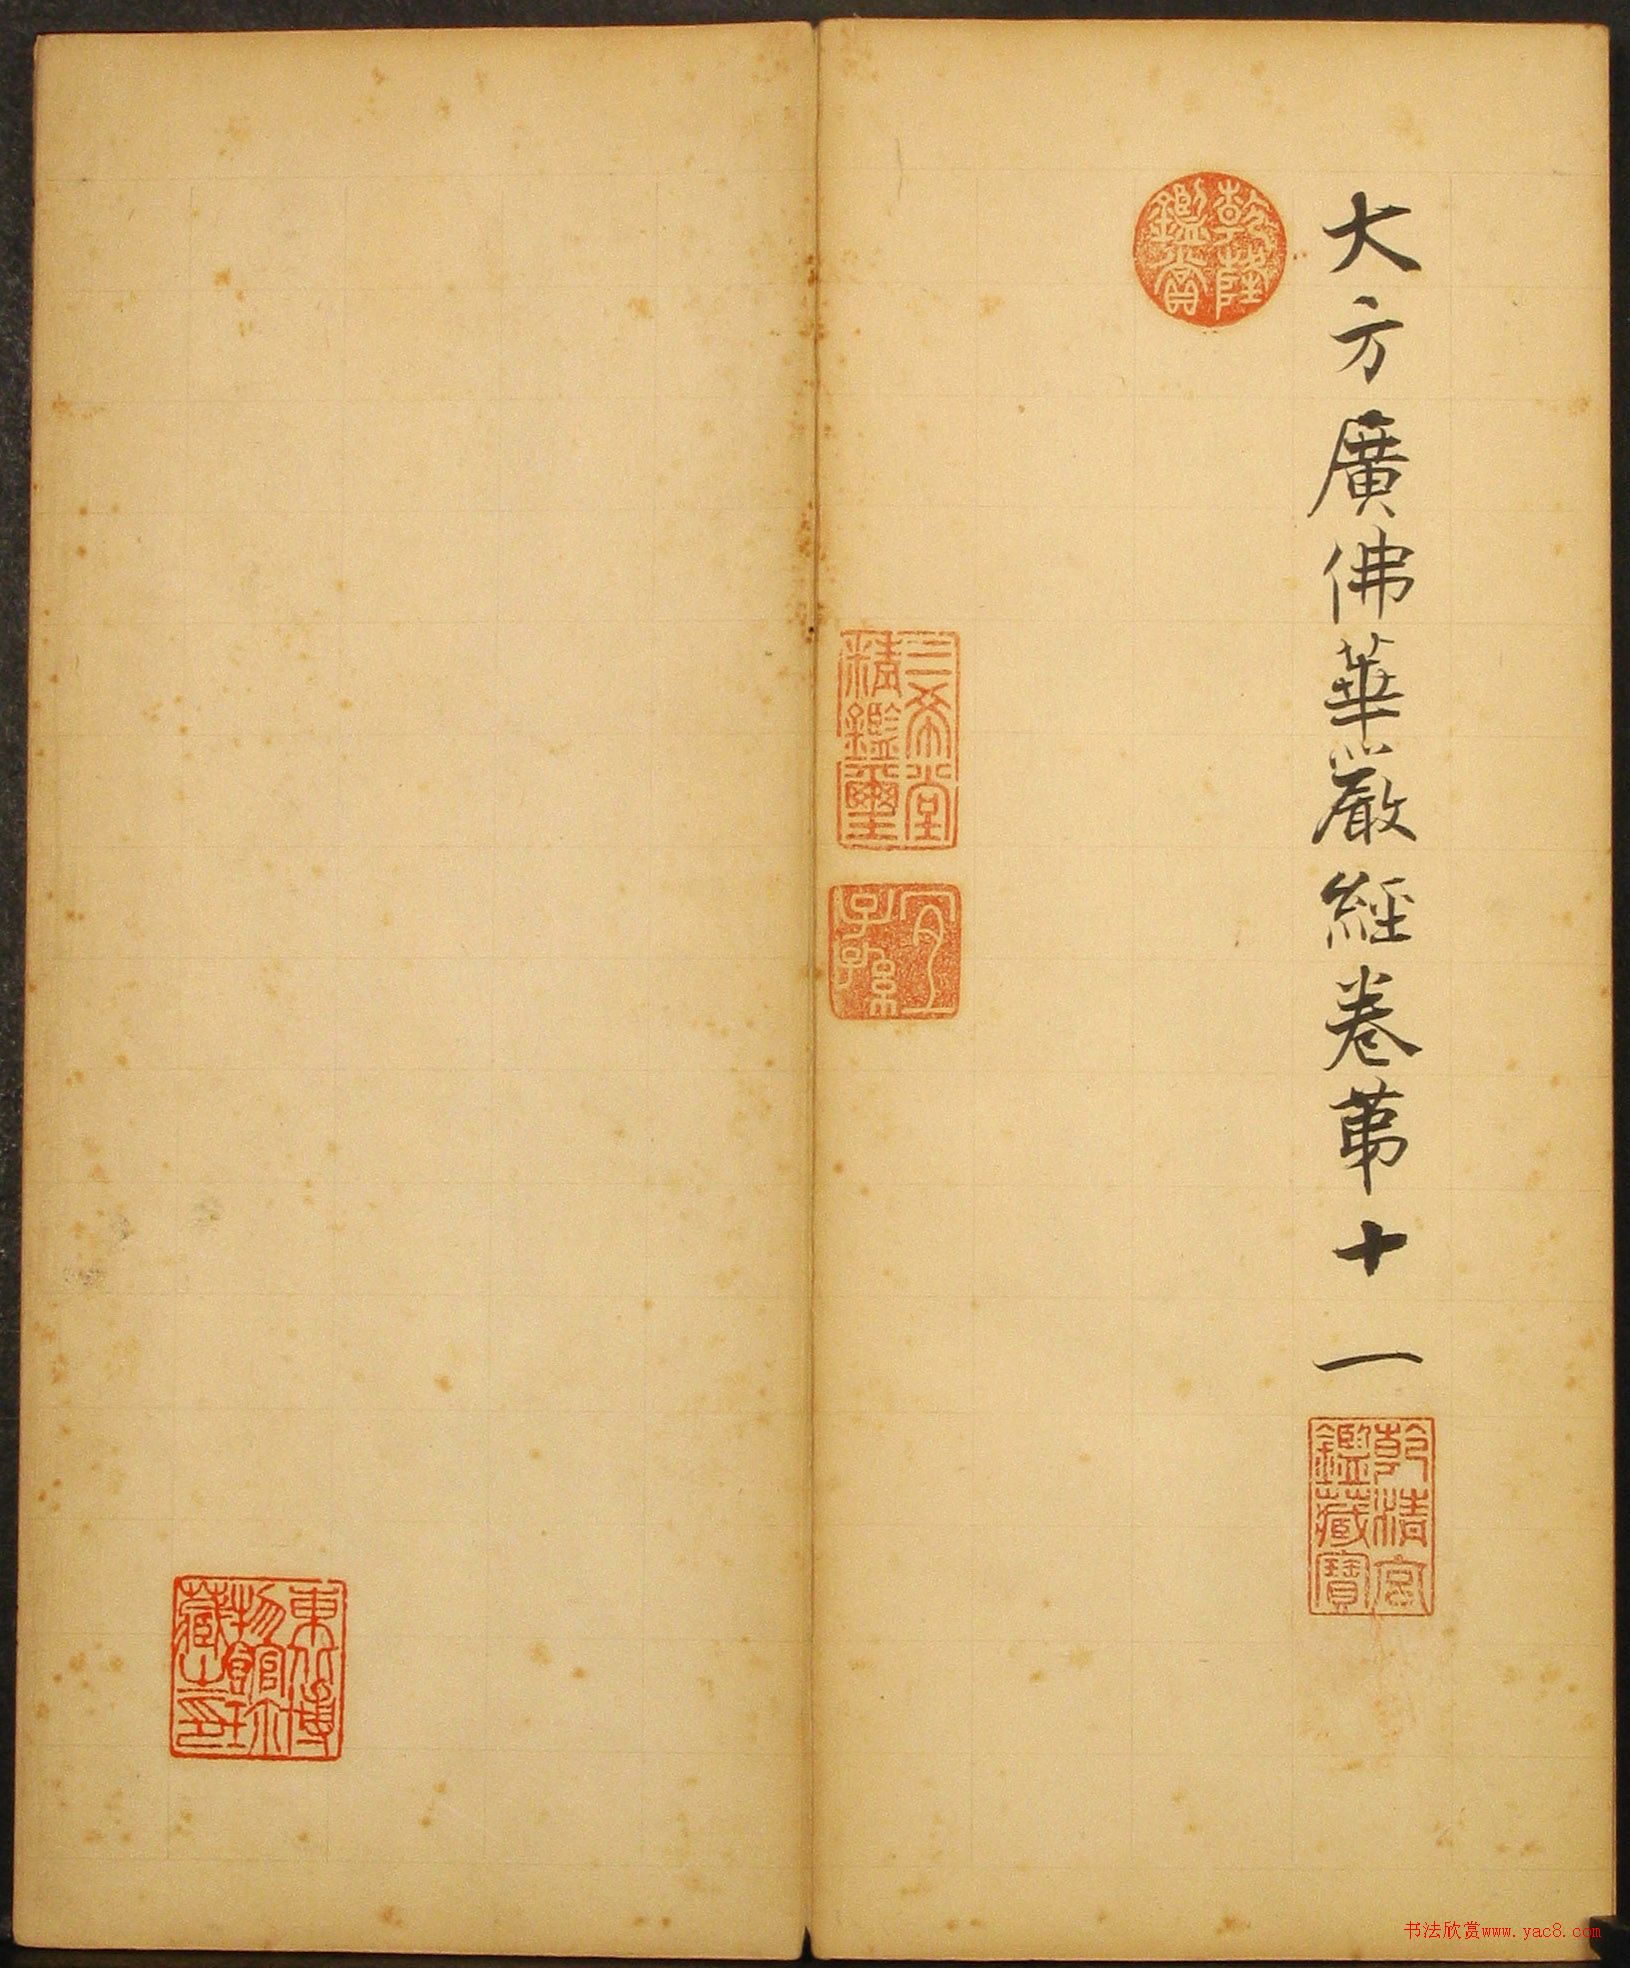 大方廣佛華嚴經卷第十一
乾隆鑑賞
乾清宮鑑藏寶
三希堂精鑑璽
宜子孫
東北博物館珍藏之印
书法欣赏www.yac8.com